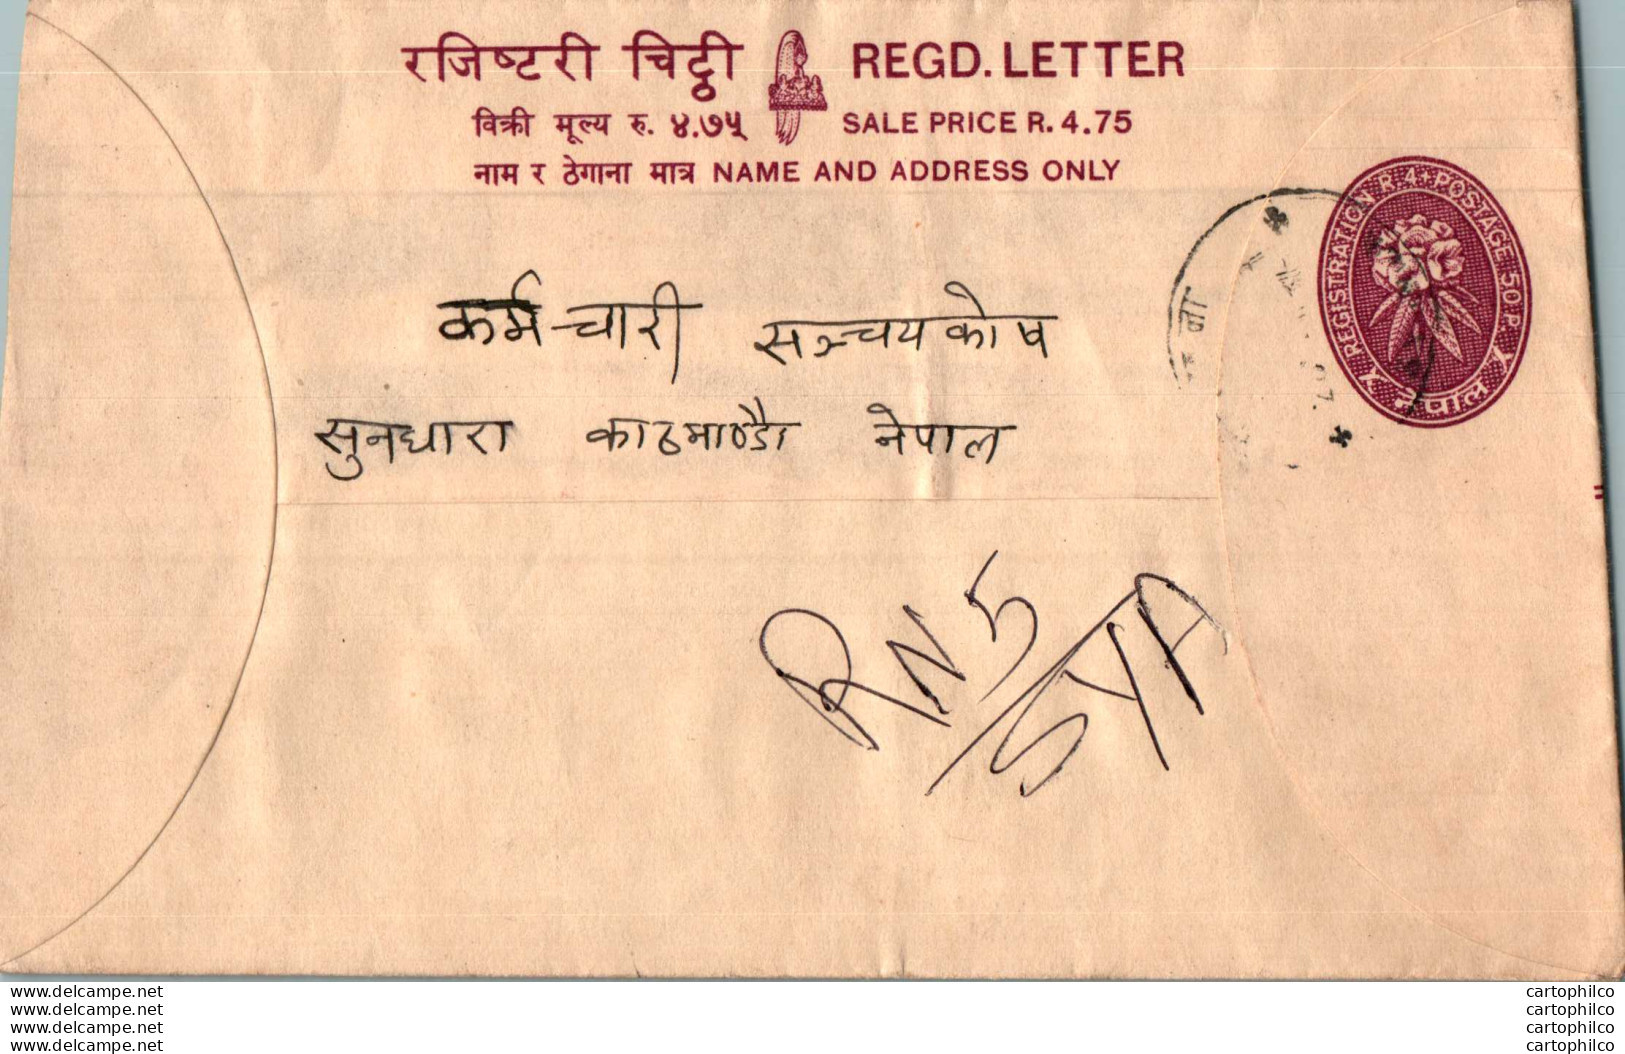 रजिष्टरी चिट्ठी REGD. LETTER
विक्री मूल्य रु. ४.७५ SALE PRICE R. 4.75
नाम र ठेगाना मात्र NAME AND ADDRESS ONLY
REGISTRATION R 4 POSTAGE 50 P.
नेपाल
कर्मचारी सञ्चयकोष
सुनधारा काठमाण्डौ नेपाल
RN5/SYA
www.delcampe.net cartophilco
www.delcampe.net cartophilco
www.delcampe.net cartophilco
www.delcampe.net cartophilco